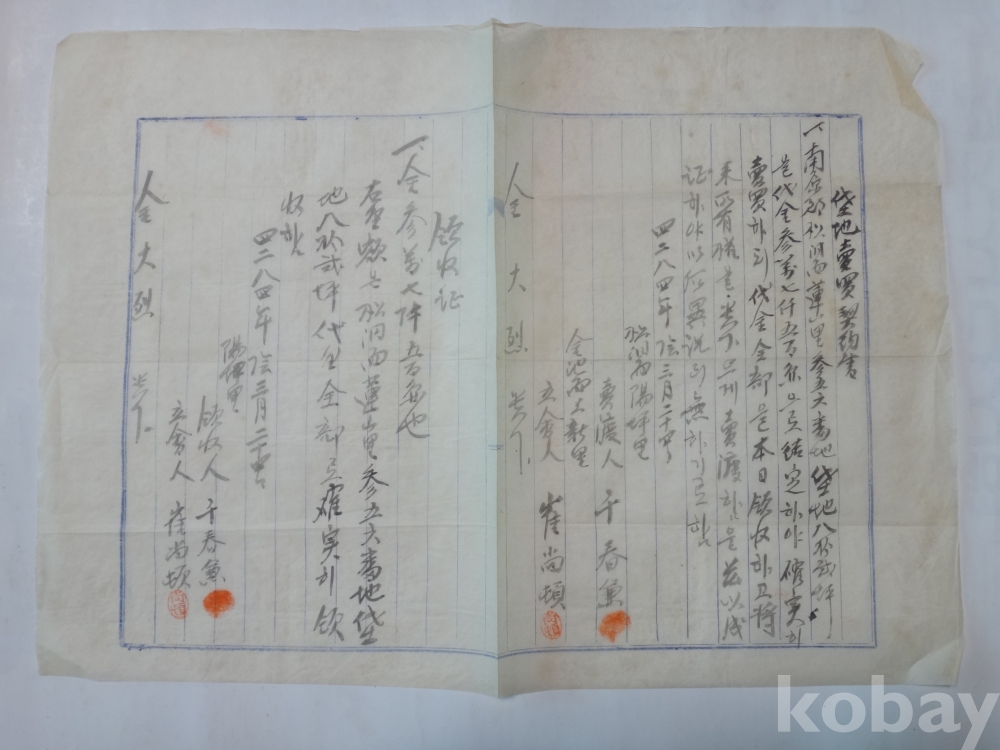 垈地賣買契約書
一、南原郡松洞面蓮山里 參五六番地 垈地八拾貳坪
를 代金參萬七仟五百 으로 結定하야 確實히
賣買하되 代金全部를 本日 領收하고 將
來 所有權을 貴下으게 賣渡함을 玆以成
証하야 以后 異說이 無하기로 함
四二八四年 陰三月二十
松洞面陽坪里
賣渡人 千春
金池面上新里
立會人 崔尙頓
金大烈 貴下
領收証
一、金參萬七仟五百 也
右金額은 松洞面蓮山里 參五六番地 垈
地八拾貳坪 代金 全部로 確實히 領
收함
四二八四年 陰三月二十
陽坪里
領收人 千春
立會人 崔尙頓
金大烈 貴下
kobay